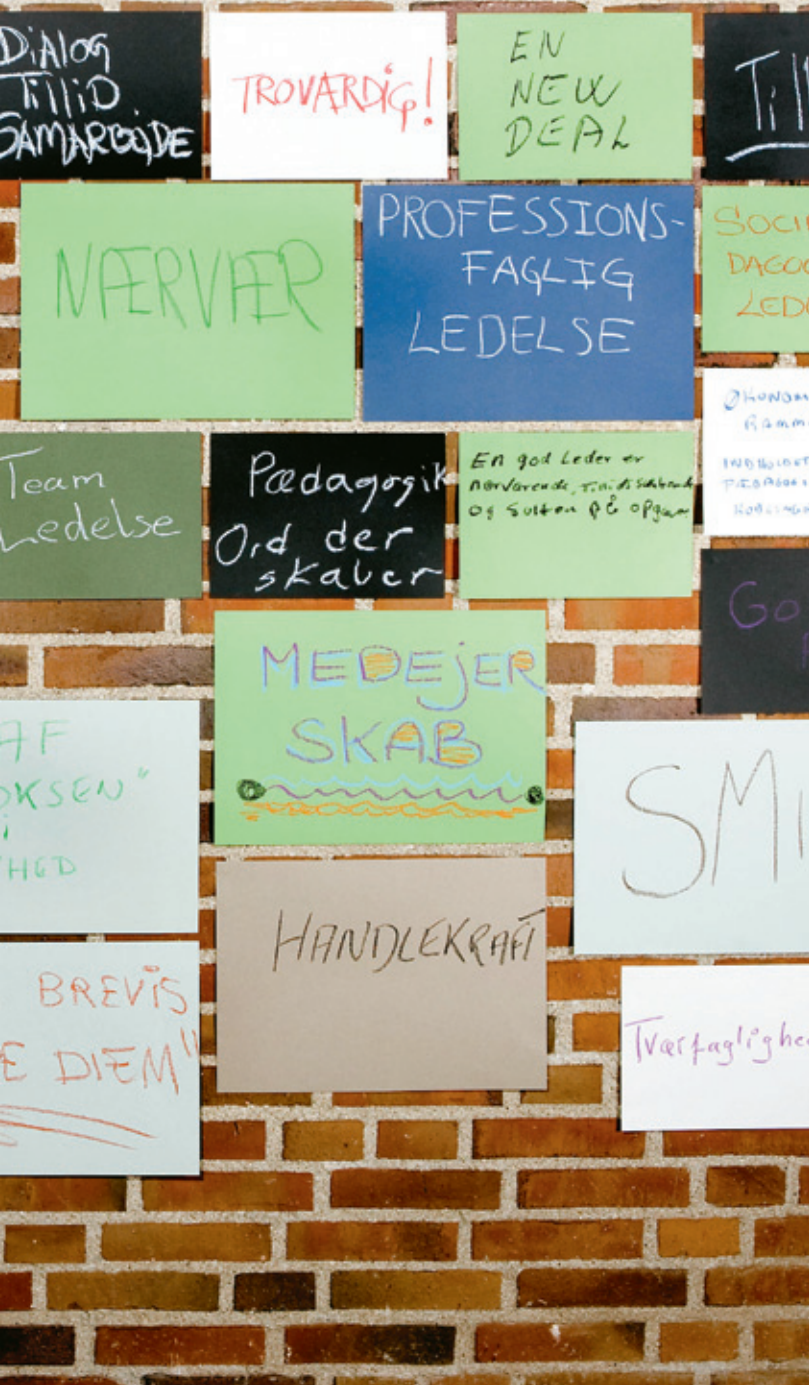 DiALOG
TilliD
SAMARBEJDE
TROVÆRDiG!
EN
NEW
DEAL
Till
NÆRVÆR
PROFESSIONS-
FAGLIG
LEDELSE
SOCI
DAGOG
LED
Team
Ledelse
Pædagogik
Ord der
skaber
En god Leder er
nærværende,
og Sulten på opgaver
ØKONOM
RAMM
INDHOLDET
PÆDAGOGI
GO
MEDEjER
SKAB
AF
OKSEN"
i
HED
SMI
HANDLEKRAFT
BREVIS
E DIEM"
Tværfaglighe